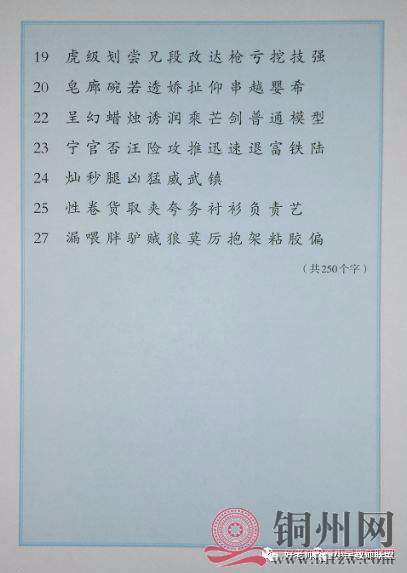 19 虎 级 划 尝 兄 段 改 达 枪 亏 挖 技 强
20 皂 廊 碗 若 透 娇 扯 仰 串 越 婴 希
22 呈 幻 蜡 烛 诱 润 乘 芒 剑 普 通 模 型
23 宁 官 否 汪 险 攻 推 迅 速 退 富 铁 陆
24 灿 秒 腿 凶 猛 威 武 镇
25 性 卷 货 取 夹 夸 务 衬 衫 负 责 艺
27 漏 喂 胖 驴 贼 狼 莫 厉 抱 架 粘 胶 偏
（共250个字）
铜州网